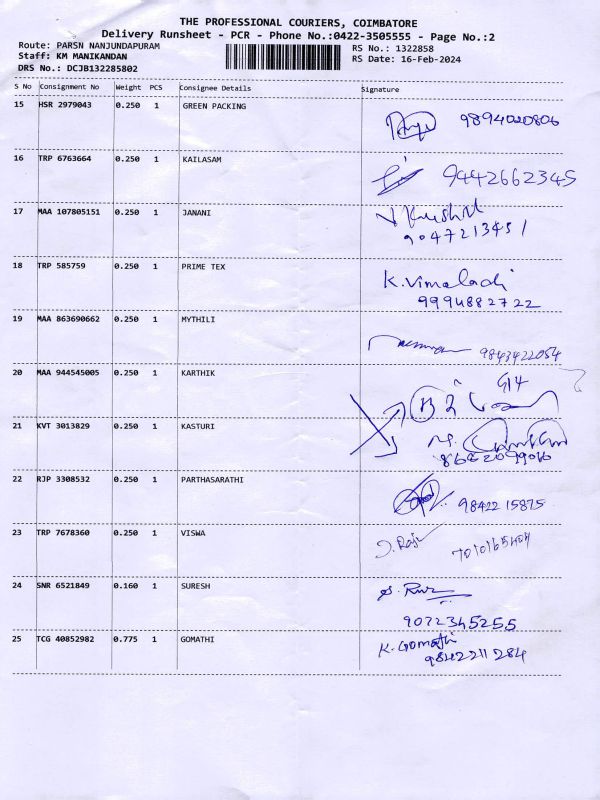 THE PROFESSIONAL COURIERS, COIMBATORE
Delivery Runsheet - PCR - Phone No.:0422-3505555 - Page No.:2
Route: PARSN NANJUNDAPURAM RS No.: 1322858
Staff: KM MANIKANDAN RS Date: 16-Feb-2024
DRS No.: DCJB132285802
S No Consignment No Weight PCS Consignee Details Signature
15 HSR 2979043 0.250 1 GREEN PACKING
9894020806
16 TRP 6763664 0.250 1 KAILASAM
9442662345
17 MAA 107805151 0.250 1 JANANI
9047213451
18 TRP 585759 0.250 1 PRIME TEX
K. Vimaladi
9994882722
19 MAA 863690662 0.250 1 MYTHILI
9843422054
20 MAA 944545005 0.250 1 KARTHIK
G14
21 KVT 3013829 0.250 1 KASTURI
22 RJP 3308532 0.250 1 PARTHASARATHI
98422 15875
23 TRP 7678360 0.250 1 VISWA
J. Raju
24 SNR 6521849 0.160 1 SURESH
9072345255
25 TCG 40852982 0.775 1 GOMATHI
K. Gomathi
9842211284